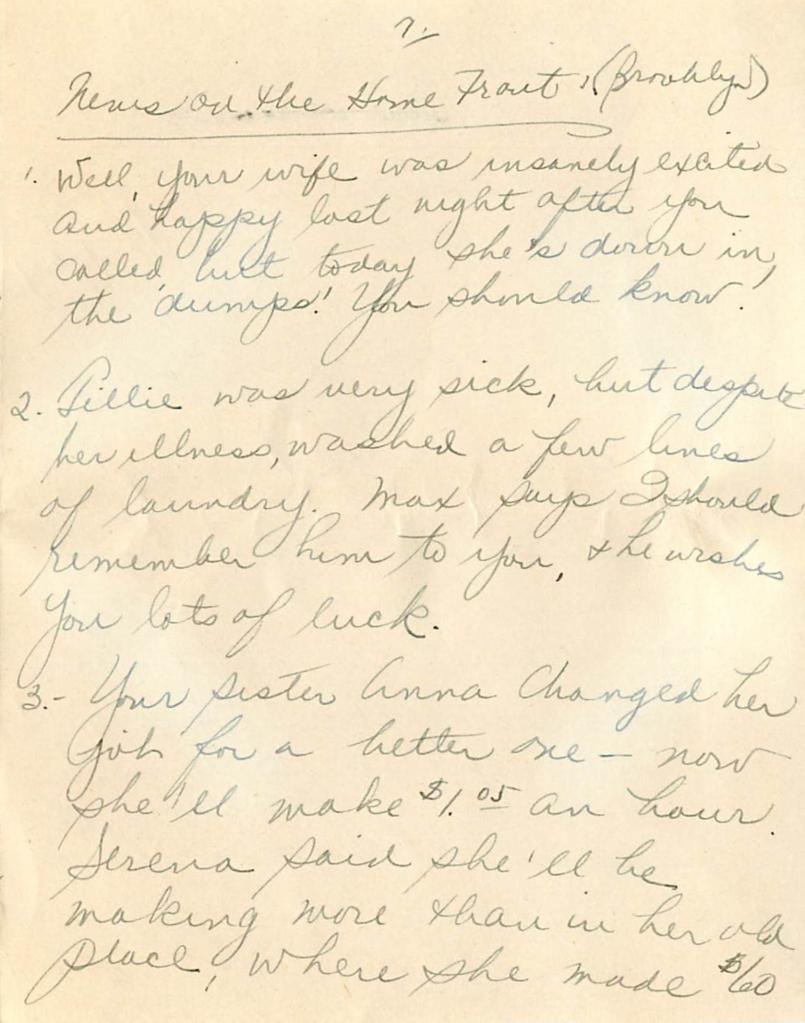 7.
News on the Home Front, (Brooklyn)
1. Well, your wife was insanely excited
and happy last night after you
called, but today she's down in
the dumps! You should know!
2. Tillie was very sick, but despite
her illness, washed a few lines
of laundry. Max says I should
remember him to you, & he wishes
you lots of luck.
3.- Your sister Anna changed her
job for a better one — now
she'll make $1.05 an hour.
Serena said she'll be
making more than in her old
place, where she made $60